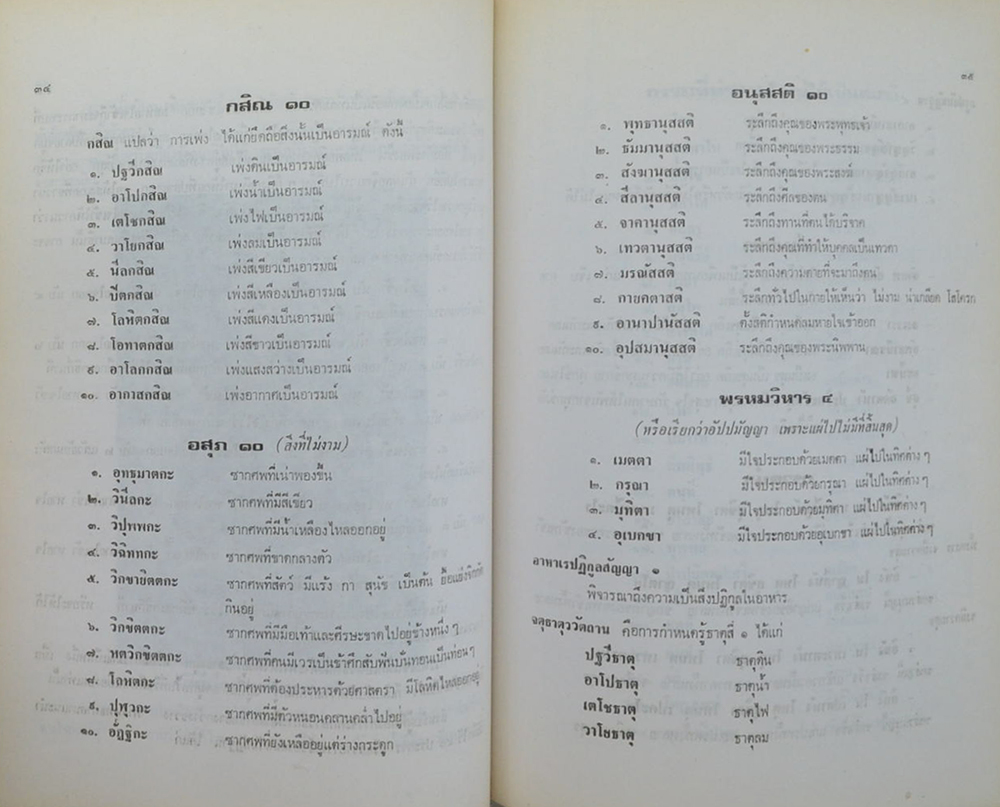 ๓๔
กสิณ ๑๐
กสิณ แปลว่า การเพ่ง ได้แก่ยึดถือสิ่งนั้นเป็นอารมณ์ ดังนี้
๑. ปฐวีกสิณ เพ่งดินเป็นอารมณ์
๒. อาโปกสิณ เพ่งน้ำเป็นอารมณ์
๓. เตโชกสิณ เพ่งไฟเป็นอารมณ์
๔. วาโยกสิณ เพ่งลมเป็นอารมณ์
๕. นีลกสิณ เพ่งสีเขียวเป็นอารมณ์
๖. ปีตกสิณ เพ่งสีเหลืองเป็นอารมณ์
๗. โลหิตกสิณ เพ่งสีแดงเป็นอารมณ์
๘. โอทาตกสิณ เพ่งสีขาวเป็นอารมณ์
๙. อาโลกกสิณ เพ่งแสงสว่างเป็นอารมณ์
๑๐. อากาสกสิณ เพ่งอากาศเป็นอารมณ์
อสุภ ๑๐ (สิ่งที่ไม่งาม)
๑. อุทธุมาตกะ ซากศพที่เน่าพองขึ้น
๒. วินีลกะ ซากศพที่มีสีเขียว
๓. วิปุพพกะ ซากศพที่มีน้ำเหลืองไหลออกอยู่
๔. วิฉิททกะ ซากศพที่ขาดกลางตัว
๕. วิกขายิตตกะ ซากศพที่สัตว์ มีแร้ง กา สุนัข เป็นต้น ยื้อแย่งจิกกัด
กินอยู่
๖. วิกขิตตกะ ซากศพที่มีมือเท้าและศีรษะขาดไปอยู่ข้างหนึ่ง ๆ
๗. หตวิกขิตตกะ ซากศพที่คนมีเวรเป็นข้าศึกสับฟันเป็นท่อนเป็นท่อน ๆ
๘. โลหิตกะ ซากศพที่ต้องประหารด้วยศาสตรา มีโลหิตไหลออกอยู่
๙. ปุฬุวกะ ซากศพที่มีตัวหนอนคลานคล่ำไปอยู่
๑๐. อัฏฐิกะ ซากศพที่ยังเหลืออยู่แต่ร่างกระดูก
๓๕
อนุสสติ ๑๐
๑. พุทธานุสสติ ระลึกถึงคุณของพระพุทธเจ้า
๒. ธัมมานุสสติ ระลึกถึงคุณของพระธรรม
๓. สังฆานุสสติ ระลึกถึงคุณของพระสงฆ์
๔. สีลานุสสติ ระลึกถึงศีลของตน
๕. จาคานุสสติ ระลึกถึงทานที่ตนได้บริจาค
๖. เทวตานุสสติ ระลึกถึงคุณที่ทำให้บุคคลเป็นเทวดา
๗. มรณัสสติ ระลึกถึงความตายที่จะมาถึงตน
๘. กายคตาสติ ระลึกทั่วไปในกายให้เห็นว่า ไม่งาม น่าเกลียด โสโครก
๙. อานาปานัสสติ ตั้งสติกำหนดลมหายใจเข้าออก
๑๐. อุปสมานุสสติ ระลึกถึงคุณของพระนิพพาน
พรหมวิหาร ๔
(หรือเรียกว่าอัปปมัญญา เพราะแผ่ไปไม่มีที่สิ้นสุด)
๑. เมตตา มีใจประกอบด้วยเมตตา แผ่ไปในทิศต่าง ๆ
๒. กรุณา มีใจประกอบด้วยกรุณา แผ่ไปในทิศต่าง ๆ
๓. มุทิตา มีใจประกอบด้วยมุทิตา แผ่ไปในทิศต่าง ๆ
๔. อุเบกขา มีใจประกอบด้วยอุเบกขา แผ่ไปในทิศต่าง ๆ
อาหาเรปฏิกูลสัญญา ๑
พิจารณาถึงความเป็นสิ่งปฏิกูลในอาหาร
จตุธาตุววัตถาน คือการกำหนดรู้ธาตุสี่ ๑ ได้แก่
ปฐวีธาตุ ธาตุดิน
อาโปธาตุ ธาตุน้ำ
เตโชธาตุ ธาตุไฟ
วาโยธาตุ ธาตุลม